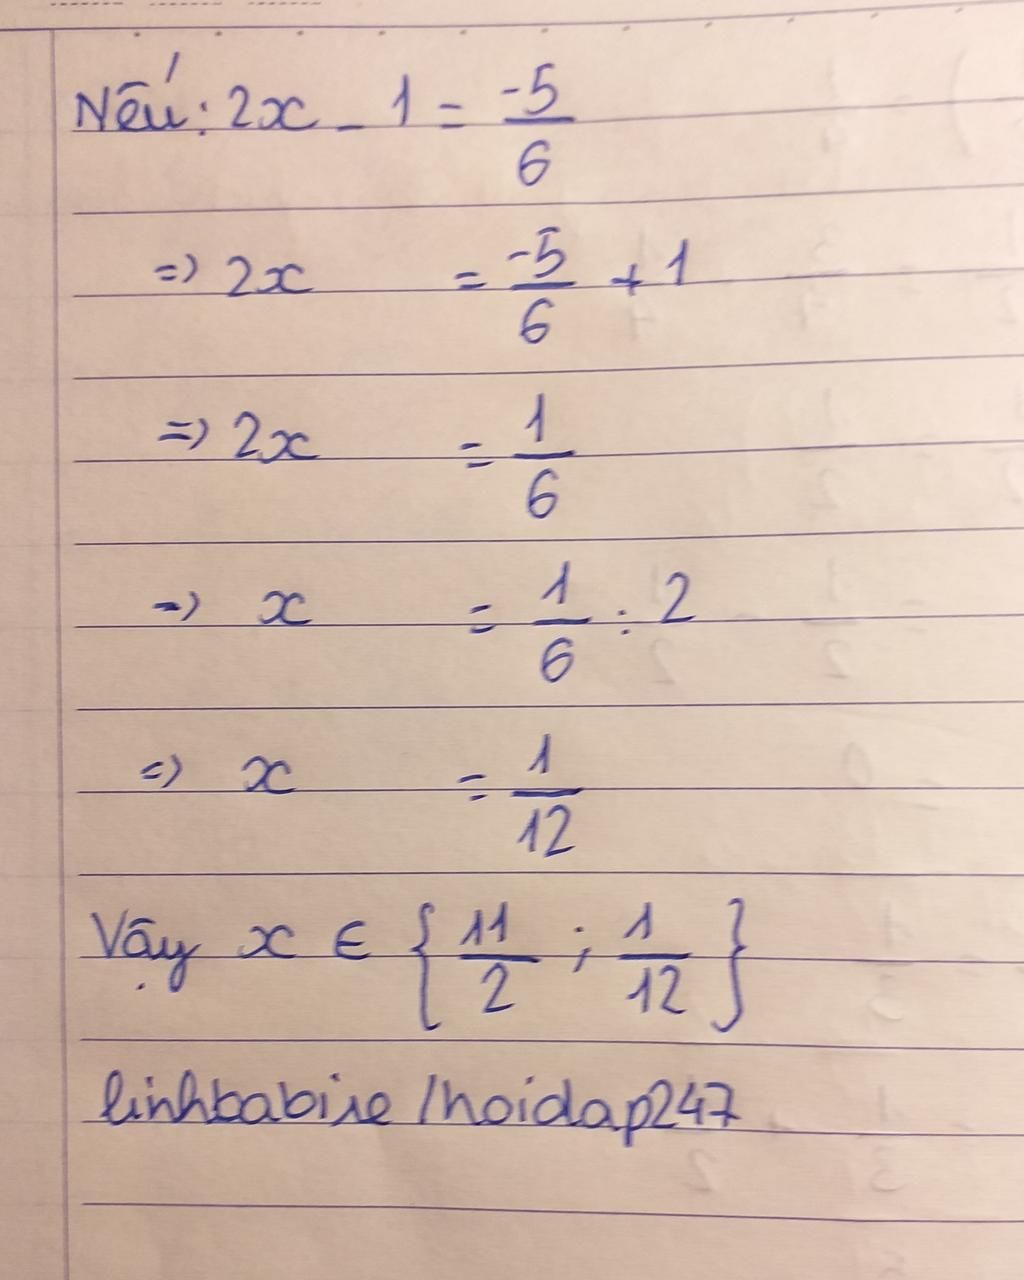 Nếu: 2x - 1 = -5/6
=> 2x = -5/6 + 1
=> 2x = 1/6
=> x = 1/6 : 2
=> x = 1/12
Vậy x ∈ { 11/2 ; 1/12 }
linhbabise /hoidap247